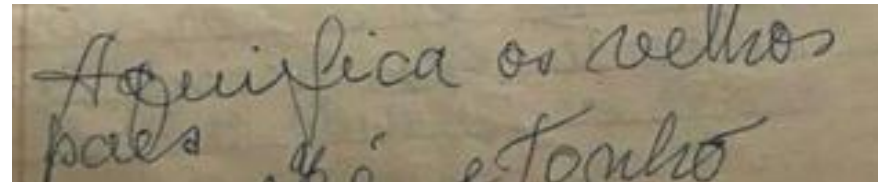 Aqui fica os velhos
paes e Tonho